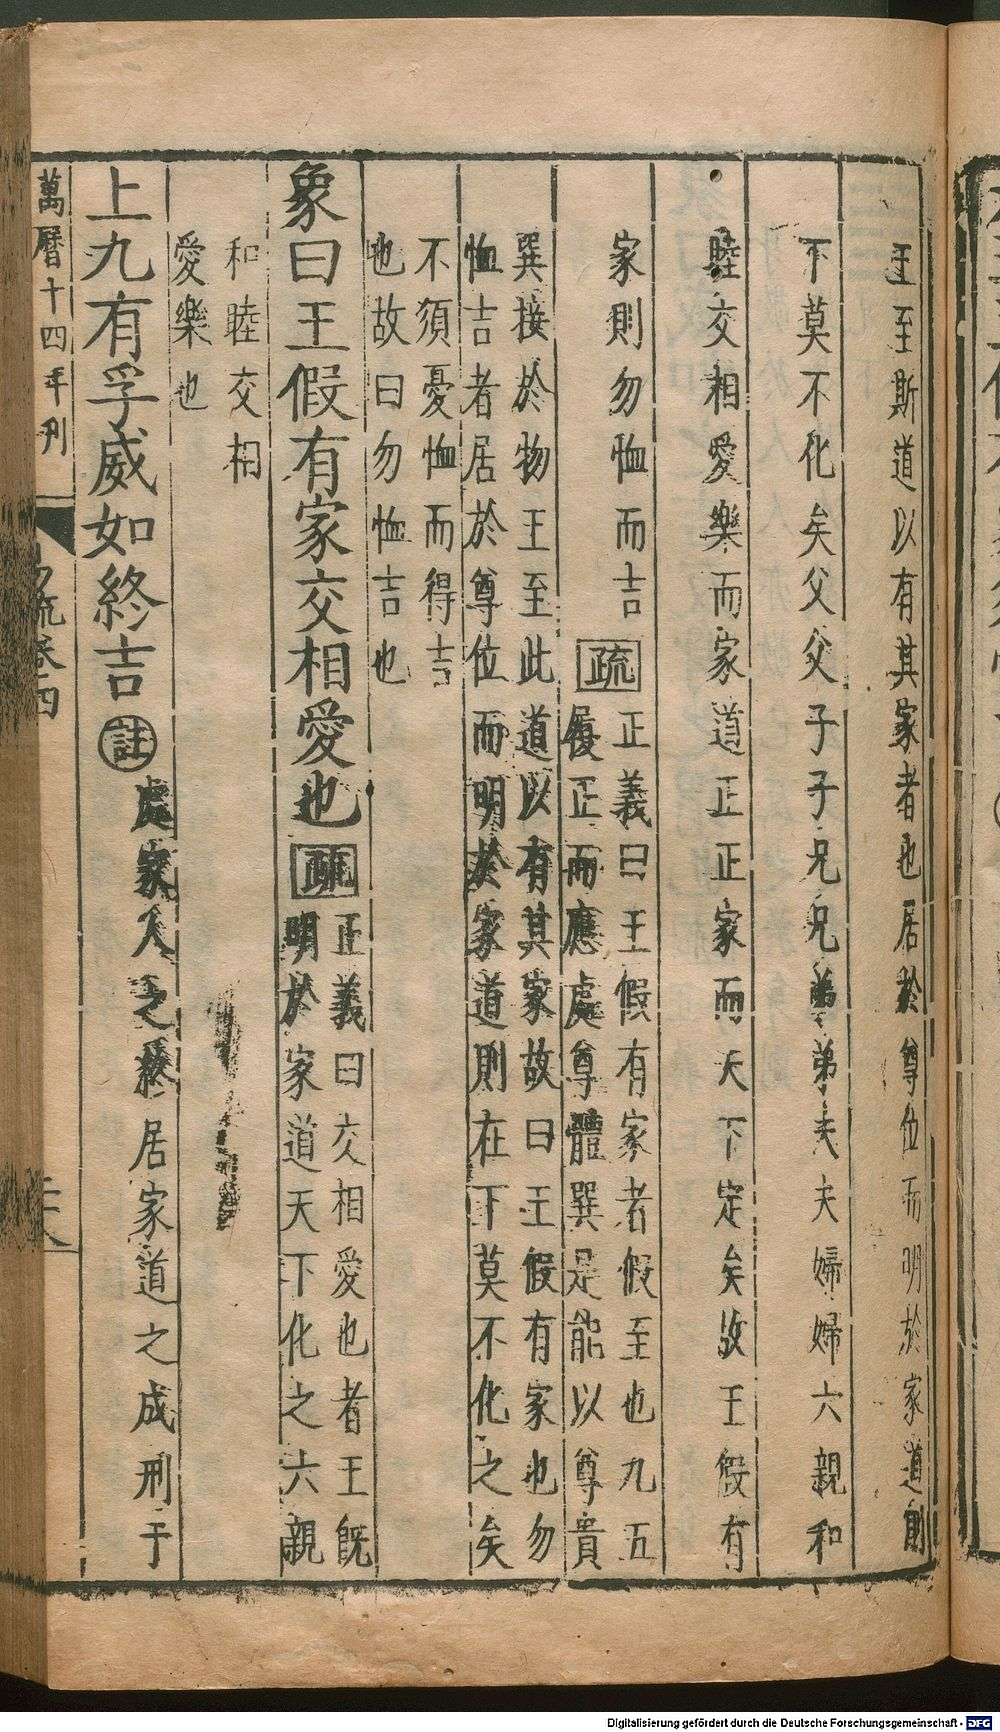 王至斯道以有其家者也居於尊位而明於家道則
下莫不化矣父父子子兄兄弟弟夫夫婦婦六親和
睦交相愛樂而家道正正家而天下定矣故王假有
家則勿恤而吉疏正義曰王假有家者假至也九五
履正而應處尊體巽是能以尊貴
巽接於物王至此道以有其家故曰王假有家也勿
恤吉者居於尊位而明於家道則在下莫不化之矣
不須憂恤而得吉
也故曰勿恤吉也
象曰王假有家交相愛也疏正義曰交相愛也者王既
明於家道天下化之六親
和睦交相
愛樂也
上九有孚威如終吉註處家人之終居家道之成刑于
萬曆十四年刋
易疏卷四
Digitalisierung gefördert durch die Deutsche Forschungsgemeinschaft - DFG